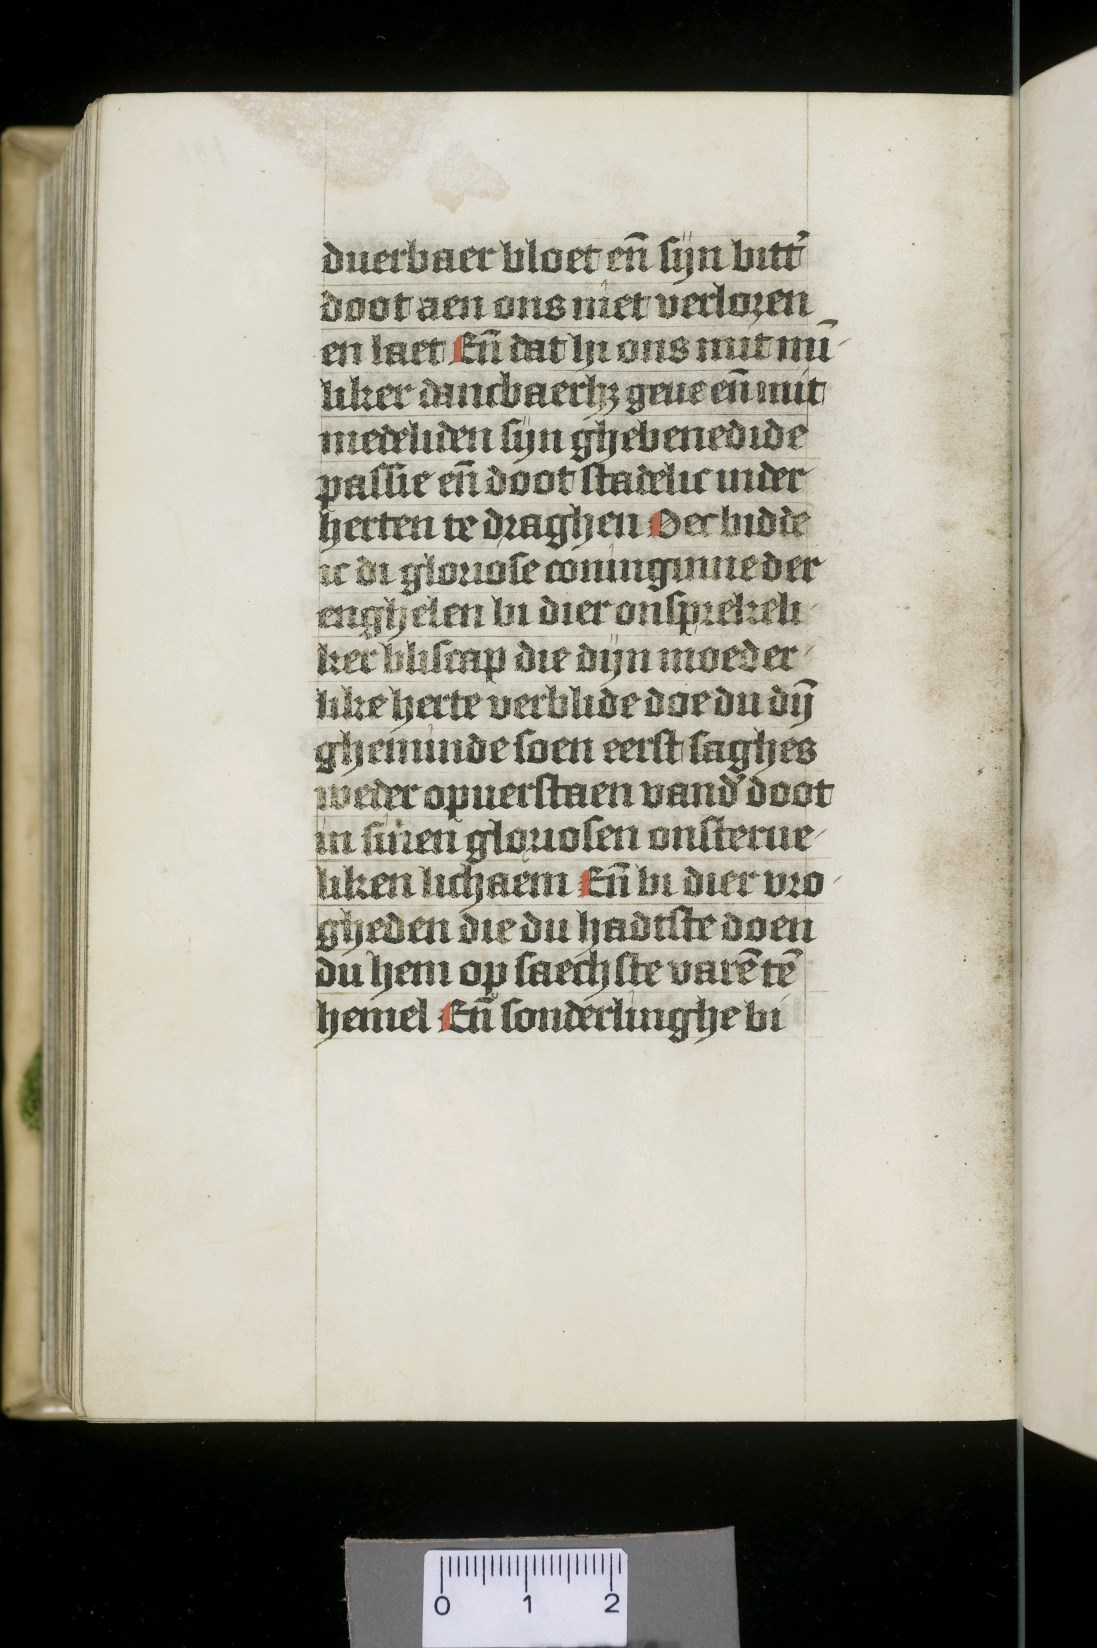 duerbaer bloet en̄ sijn bitt'
doot aen ons niet verloren
en laet En̄ dat hi ons mit mī-
liker dancbaerhʒ geue en̄ mit
medeliden sijn ghebenedide
passie en̄ doot stadelic inder
herten te draghen Oec bidde
ic di gloriose coninginne der
enghelen bi dier onsprekeli-
ker bliscap die dijn moeder-
like herte verblide doe du dij̄
gheminde soen eerst saghes
weder opuerstaen vand' doot
in sinen gloriosen onsterue-
liken lichaem En̄ bi dier vro-
gheden die du hadtste doen
du hem op saechste varē tē
hemel En̄ sonderlinghe bi
0 1 2